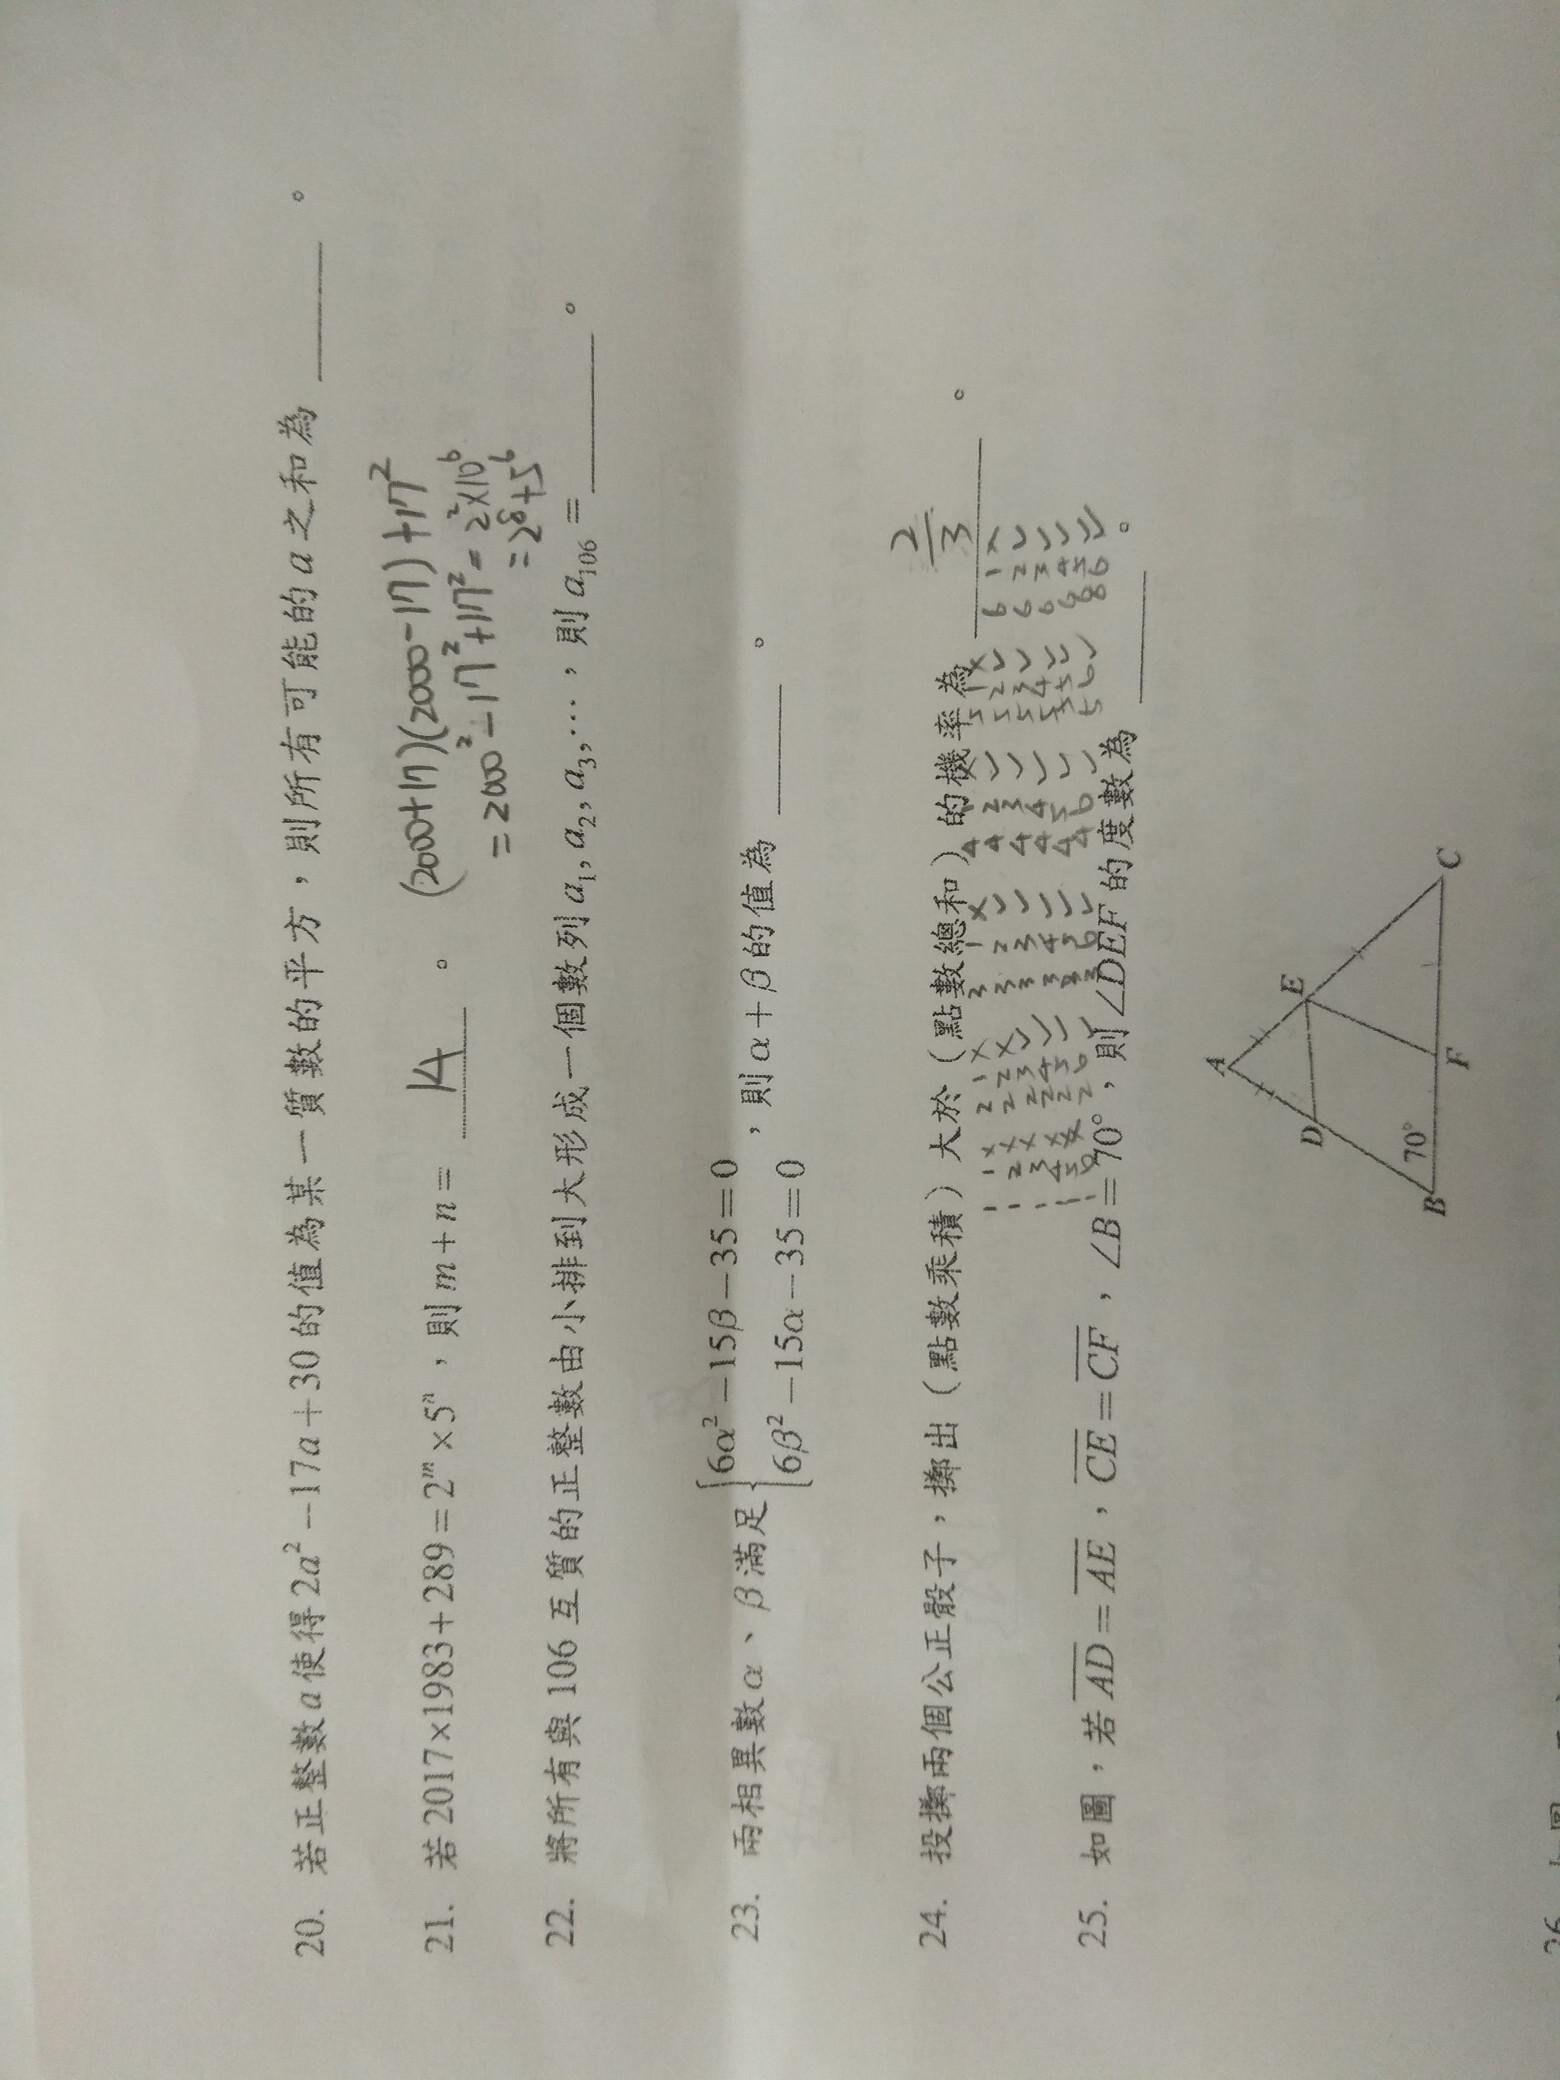 20. 若正整數a使得2a²-17a+30的值為某一質數的平方，則所有可能的a之和為______。
21. 若2017×1983+289=2ᵐ×5ⁿ，則m+n= 14 。
(2000+17)(2000-17)+17²
=2000²-17²+17²=2²×10⁶
=2⁸+5⁶
22. 將所有與106互質的正整數由小排到大形成一個數列a₁, a₂, a₃,⋯，則a₁₀₆=______。
23. 兩相異數α、β滿足{6α²-15β-35=0
6β²-15α-35=0，則α+β的值為______。
24. 投擲兩個公正骰子，擲出（點數乘積）大於（點數總和）的機率為 2/3 。
25. 如圖，若AD=AE，CE=CF，∠B=70°，則∠DEF的度數為______。
A
D
E
70°
B
F
C